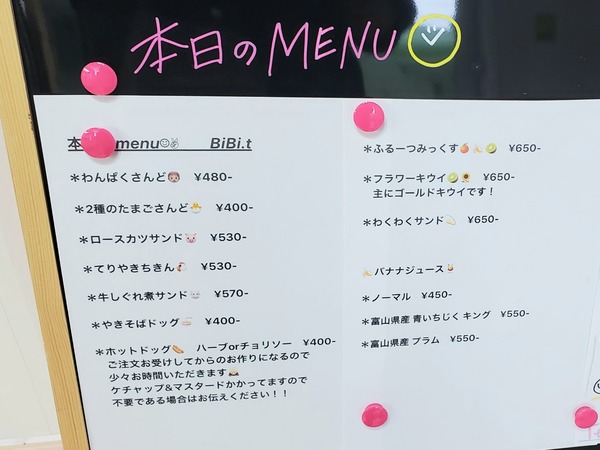 本日のMENU
本 menu☺✌ BiBi.t
＊わんぱくさんど👦 ¥480-
＊2種のたまごさんど🐣 ¥400-
＊ロースカツサンド🐷 ¥530-
＊てりやきちきん🐔 ¥530-
＊牛しぐれ煮サンド🐮 ¥570-
＊やきそばドッグ🍜 ¥400-
＊ホットドッグ🌭 ハーブorチョリソー ¥400-
ご注文お受けしてからのお作りになるので
少々お時間いただきます🙇
ケチャップ&マスタードかかってますので
不要である場合はお伝えください！！
＊ふるーつみっくす🍎🍌🥝 ¥650-
＊フラワーキウイ🥝🌻 ¥650-
主にゴールドキウイです！
＊わくわくサンド ¥650-
🍌バナナジュース🥤
＊ノーマル ¥450-
＊富山県産 青いちじく キング ¥550-
＊富山県産 プラム ¥550-